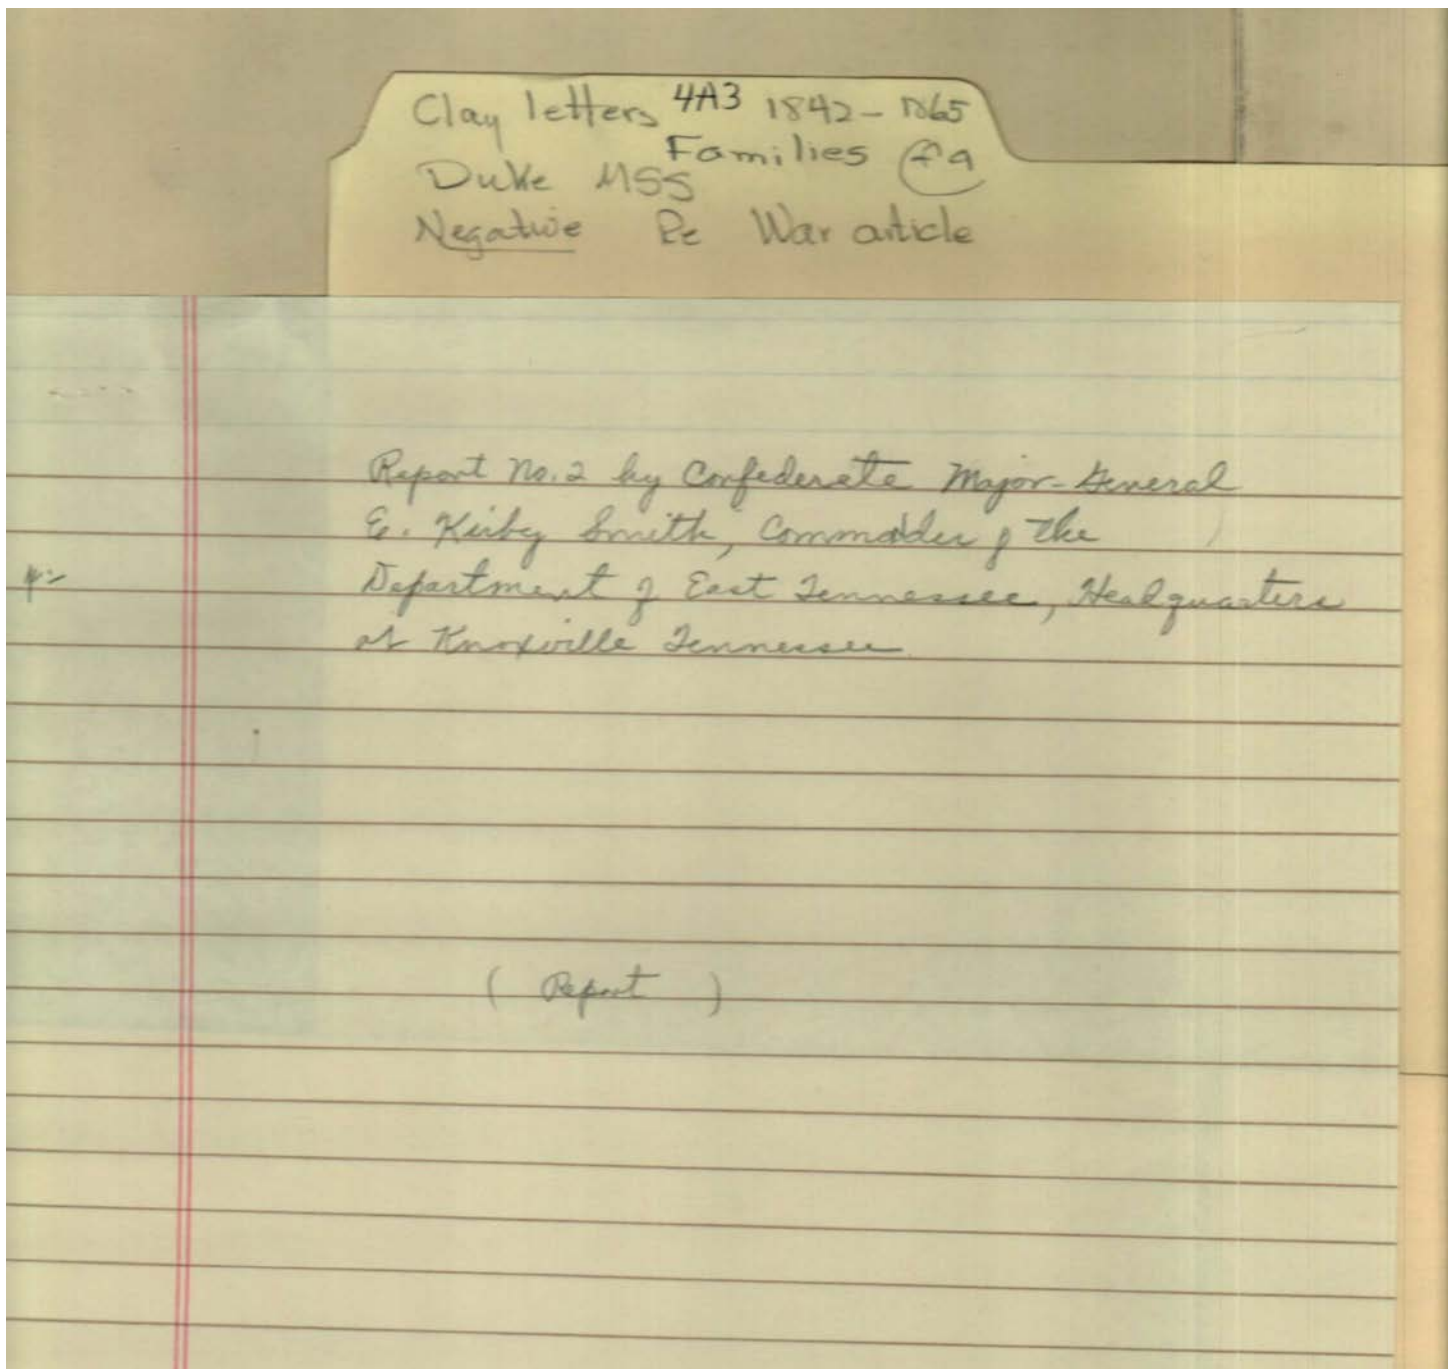 Clay letters 4A3 1842-1865
Families f9
Duke MSS
Negative Re War article
Report No. 2 by Confederate Major-General
E. Kirby Smith, Commadder of the
Department of East Tennessee, Headquarters
at Knoxville Tennessee
( Report )